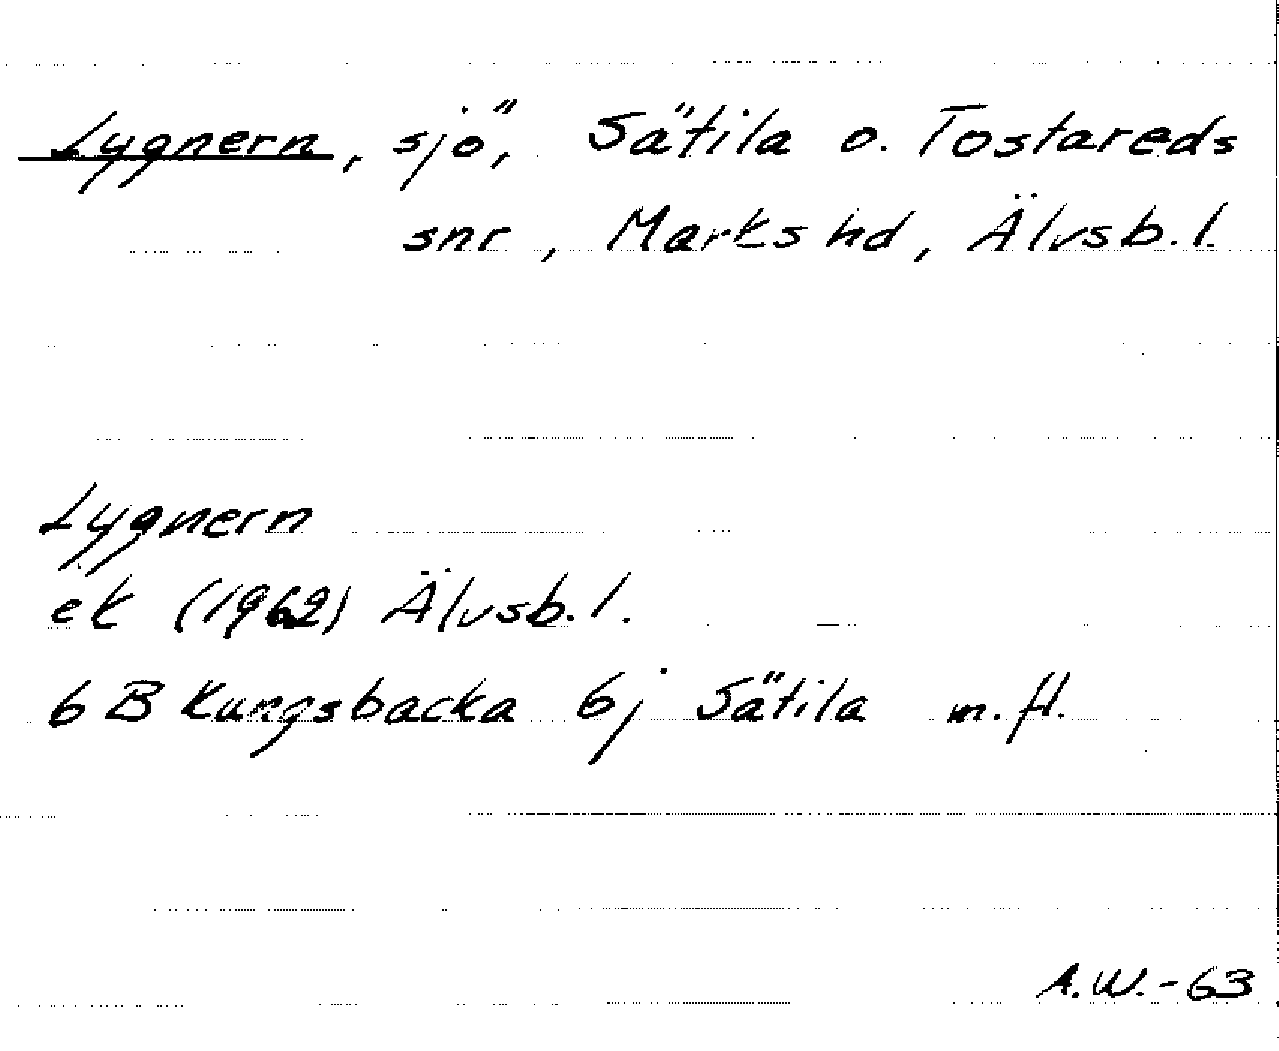 Lygnern, sjö, Sätila o. Tostareds
snr, Marks hd, Älvsb. l.
Lygnern
ek (1962) Älvsb. l.
6 B Kungsbacka 6j Sätila m. fl.
A.W.-63